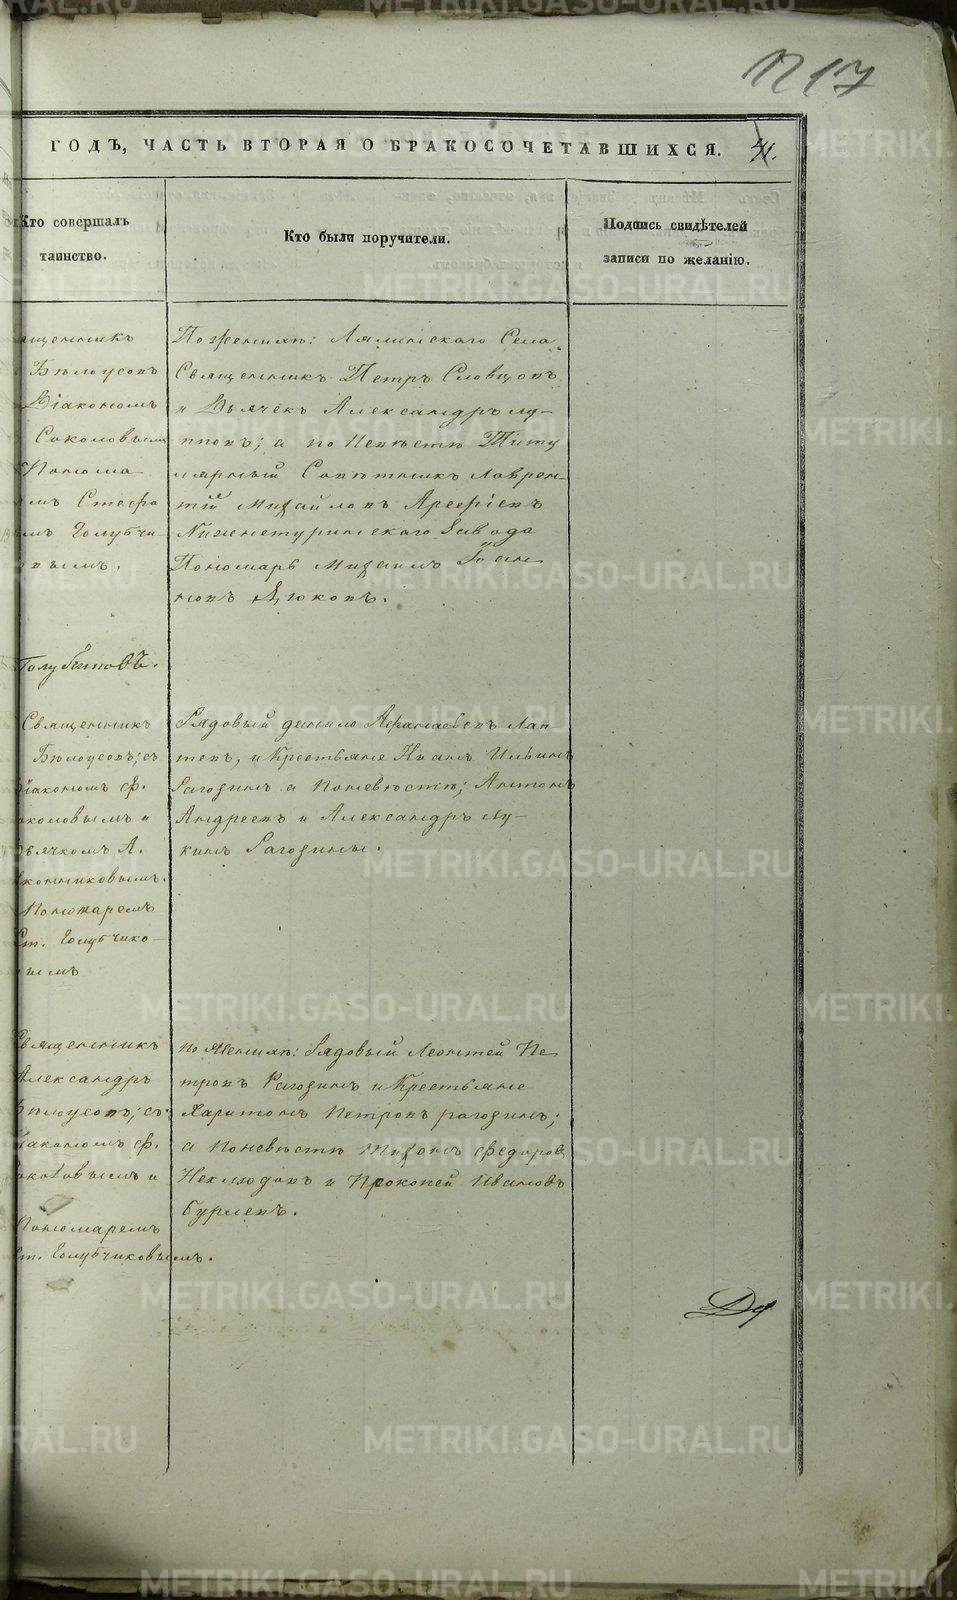 1217
ГОДЪ, ЧАСТЬ ВТОРАЯ О БРАКОСОЧЕТАВШИХСЯ. 41.
Кто совершалъ
таинство.
Кто были поручители.
Подпись свидѣтелей
записи по желанію.
ященникъ
Бѣлоусовъ
Діакономъ
Соколовымъ
Понома-
мъ Стефа
мъ Голубчи-
овымъ.
Голубчиковъ.
По женихѣ: Лялинскаго Села
Священникъ Петръ Словцовъ
и Дьячекъ Александръ Лу-
пповъ; а по Невѣстѣ Титу
лярный Совѣтникъ Лаврен-
тій Михайловъ Арефіевъ
Нижнетуринскаго Завода
Пономарь Михаилъ Іоан
новъ Дюковъ.
Священникъ
Бѣлоусовъ; съ
Діакономъ Ф.
околовымъ и
Дьячкомъ А.
конниковымъ.
Пономаремъ
Ст. Голубчико-
вымъ
Рядовый Данило Афанасьевъ Лап-
тевъ, и Крестьяне Иванъ Ильинъ
Рагозинъ а поневѣстѣ; Антонъ
Андреевъ и Александръ Лу-
кинъ Рагозины.
Священникъ
Александръ
Бѣлоусовъ; съ
Діакономъ Ф.
околовымъ и
Пономаремъ
Ст. Голубчиковымъ.
по Женихѣ: Рядовый Леонтей Пе-
тровъ Рагозинъ и Крестьяне
Харитонъ Петровъ рагозинъ;
а поневѣстѣ Тихонъ Федоровъ
Неклюдовъ и Прокопей Ивановъ
Бурлевъ.
METRIKI.GASO-URAL.RU